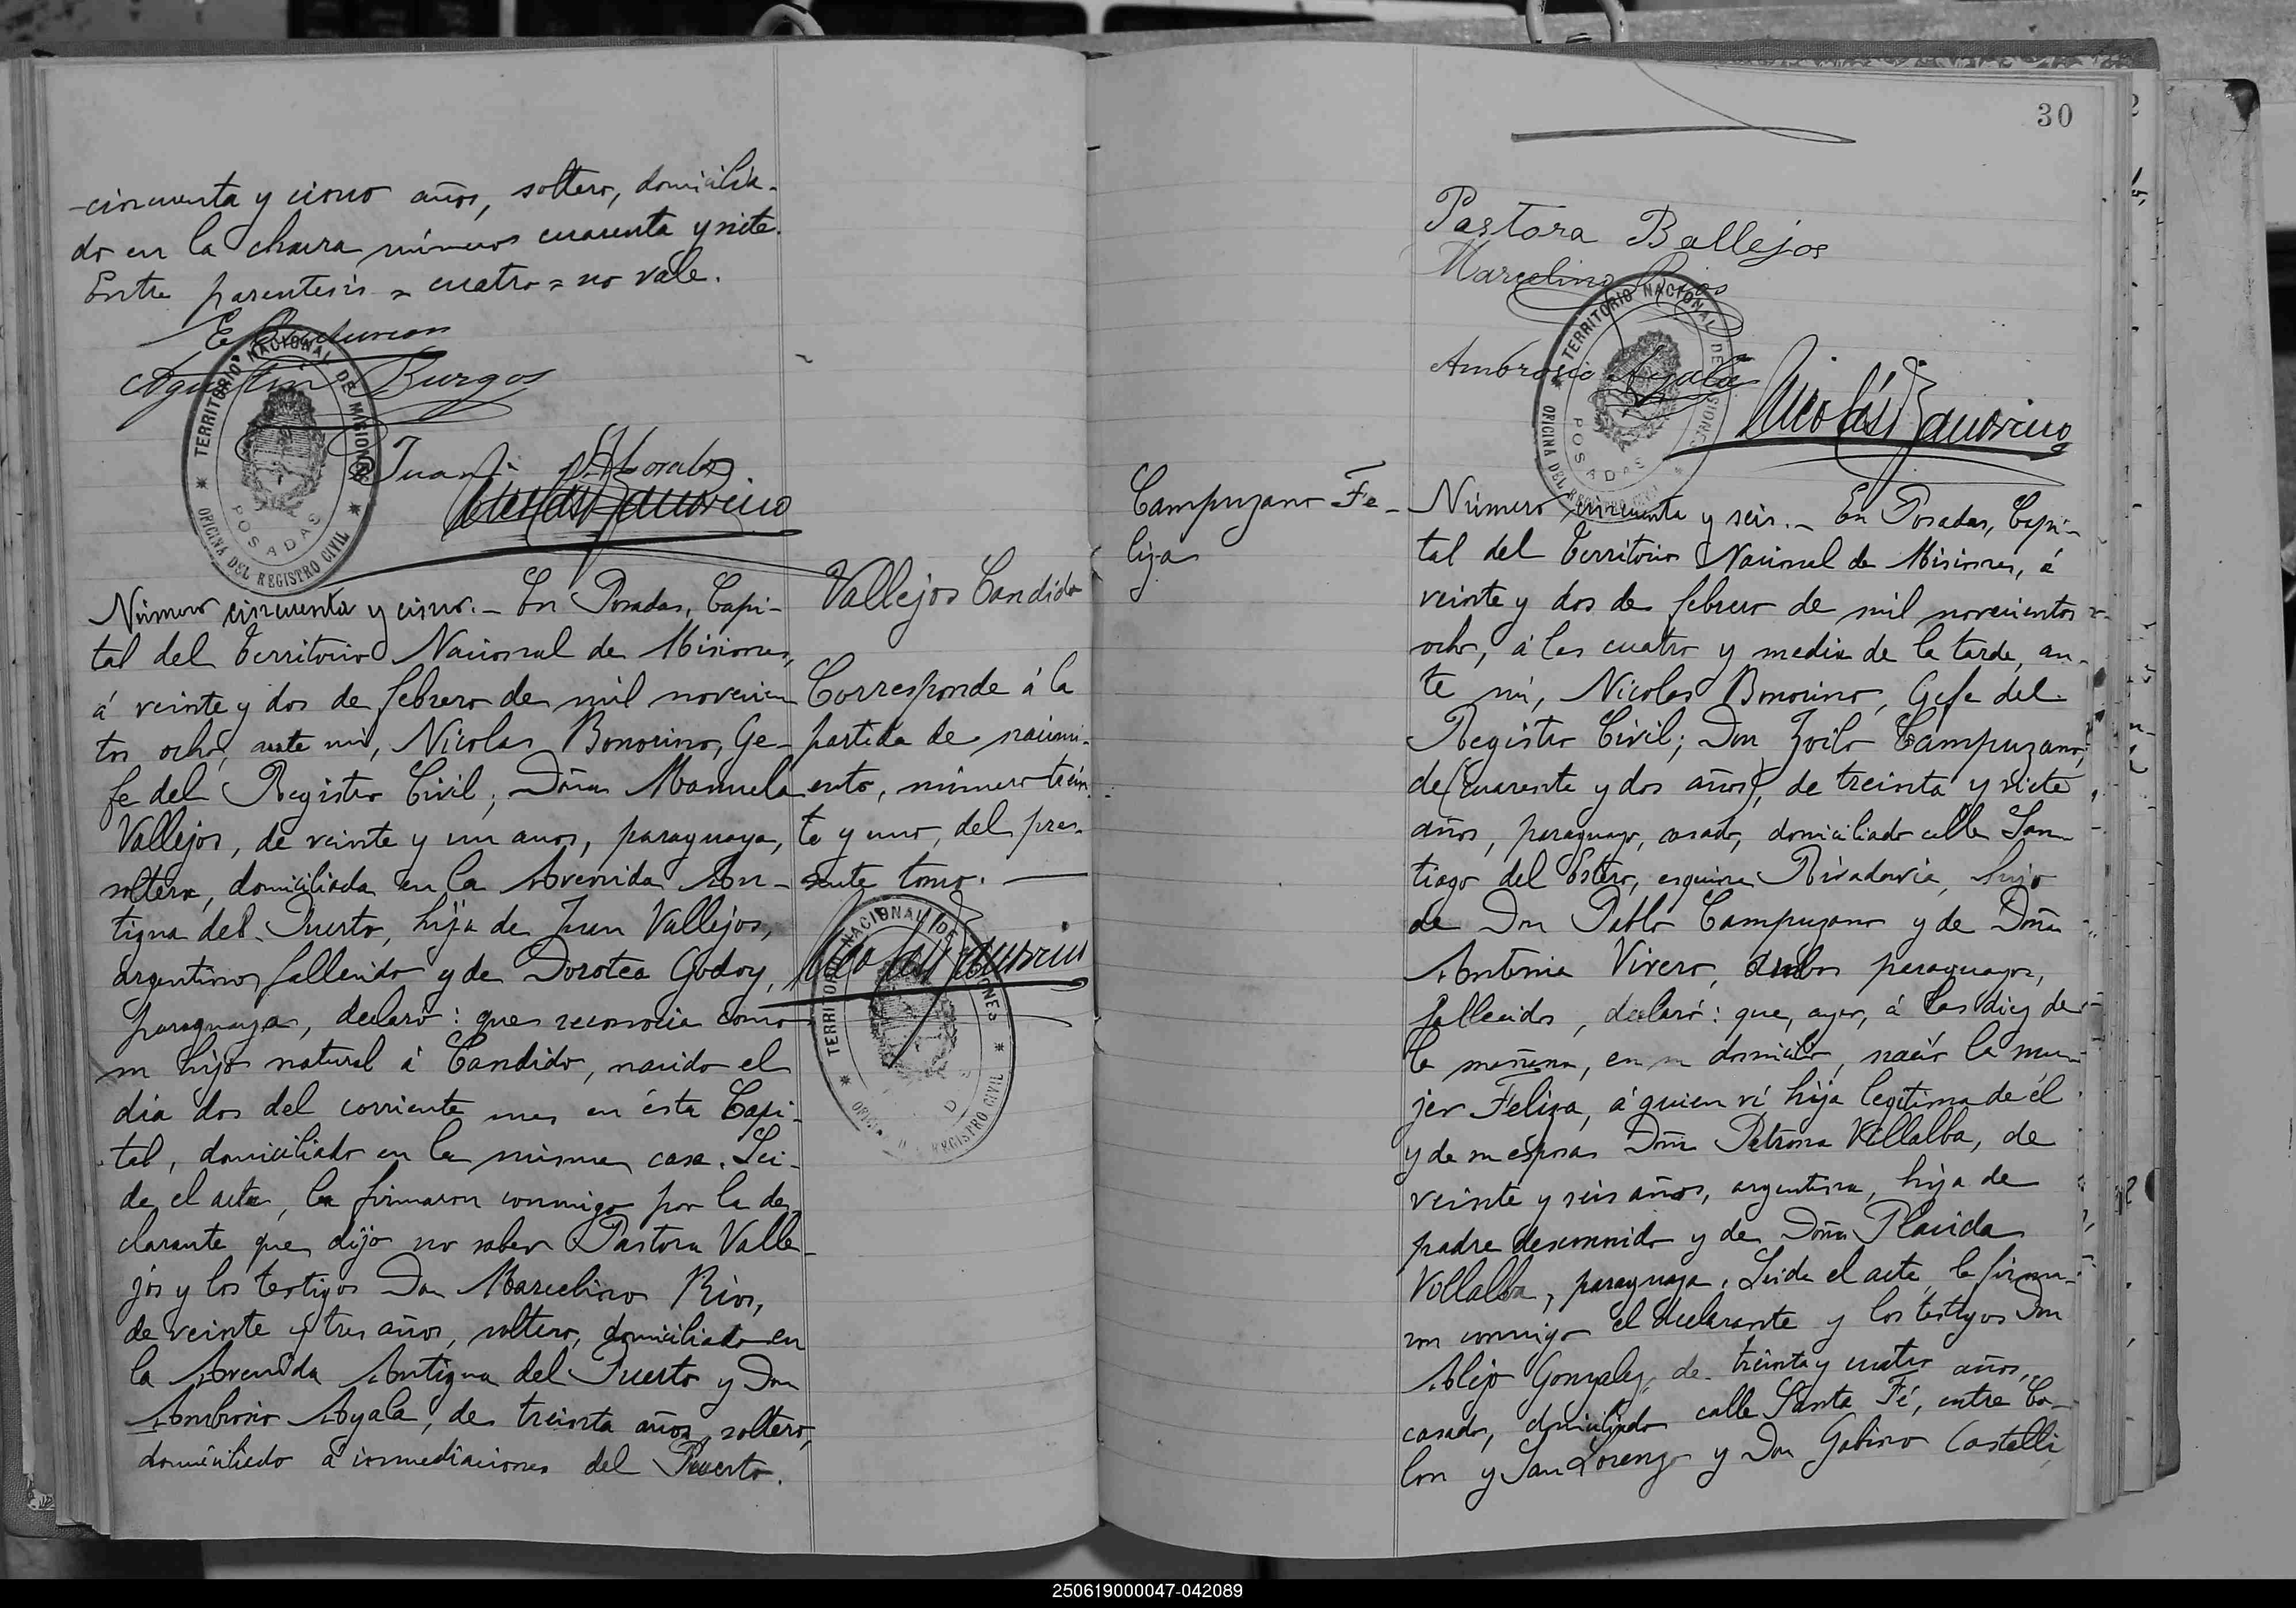 -cincuenta y cinco años, soltero, domicilia-
do en la chacra número cuarenta y siete.
Entre parentesis = cuatro = no vale.
Agustin Burgos
TERRITORIO NACIONAL DE MISIONES
POSADAS
OFICINA DEL REGISTRO CIVIL
Juan Morales
Nicolás Bonorino
Número cincuenta y cinco.- En Posadas, Capi-
tal del Territorio Nacional de Misiones,
á veinte y dos de febrero de mil novecien
tos ocho, ante mi, Nicolas Bonorino, Ge-
fe del Registro Civil; Doña Manuela
Vallejos, de veinte y un anos, paraguaya,
soltera, domiciliada en la Avenida An-
tigua del Puerto, hija de Juan Vallejos,
argentino, fallecido y de Dorotea Godoy,
paraguaya, declaró: que reconocia como
su hijo natural á Candido, nacido el
dia dos del corriente mes en ésta Capi-
tal, domiciliado en la misma casa. Lei-
da el acta, la firmaron conmigo por la de-
clarante que dijo no saber Pastora Valle-
jos y los testigos Don Marcelino Rios,
de veinte y tres años, soltero, domiciliado en
la Avenida Antigua del Puerto y Don
Ambrosio Ayala, de treinta años, soltero,
domiciliado á inmediaciones del Puerto.
Vallejos Candido
Corresponde á la
partida de naimi-
ento, número trein
ta y uno, del pre-
sente tomo.
Nicolás Bonorino
TERRITORIO NACIONAL DE MISIONES
REGISTRO CIVIL
30
Pastora Ballejos
Marcelino Rios
Ambrosio Ayala
TERRITORIO NACIONAL DE MISIONES
POSADAS
OFICINA DEL REGISTRO CIVIL
Nicolás Bonorino
Campuzano Fe-
liza
Número cincuenta y seis.- En Posadas, Capi-
tal del Territorio Nacional de Misiones, á
veinte y dos de febrero de mil novecientos
ocho, á las cuatro y media de la tarde, an-
te mi, Nicolas Bonorino, Gefe del
Registro Civil; Don Zoilo Campuzano,
de (cuarenta y dos años), de treinta y siete
años, paraguayo, casado, domiciliado calle San
tiago del Estero, esquina Rivadavia, hijo
de Don Pablo Campuzano y de Doña
Antonia Vivero, ambos paraguayos,
fallecidos, declaró: que, ayer, á las diez de
la mañana, en su domicilio, nació la mu-
jer Feliza, á quien ví hija legitima de él
y de su esposa Doña Petrona Villalba, de
veinte y seis años, argentina, hija de
padre desconocido y de Doña Placida
Villalba, paraguaya. Leida el acta, la firma-
ron conmigo el declarante y los testigos Don
Alejo Gonzalez, de treinta y cuatro años,
casado, domiciliado calle Santa Fé, entre Co-
lon y San Lorenzo y Don Gabino Castelli,
250619000047-042089